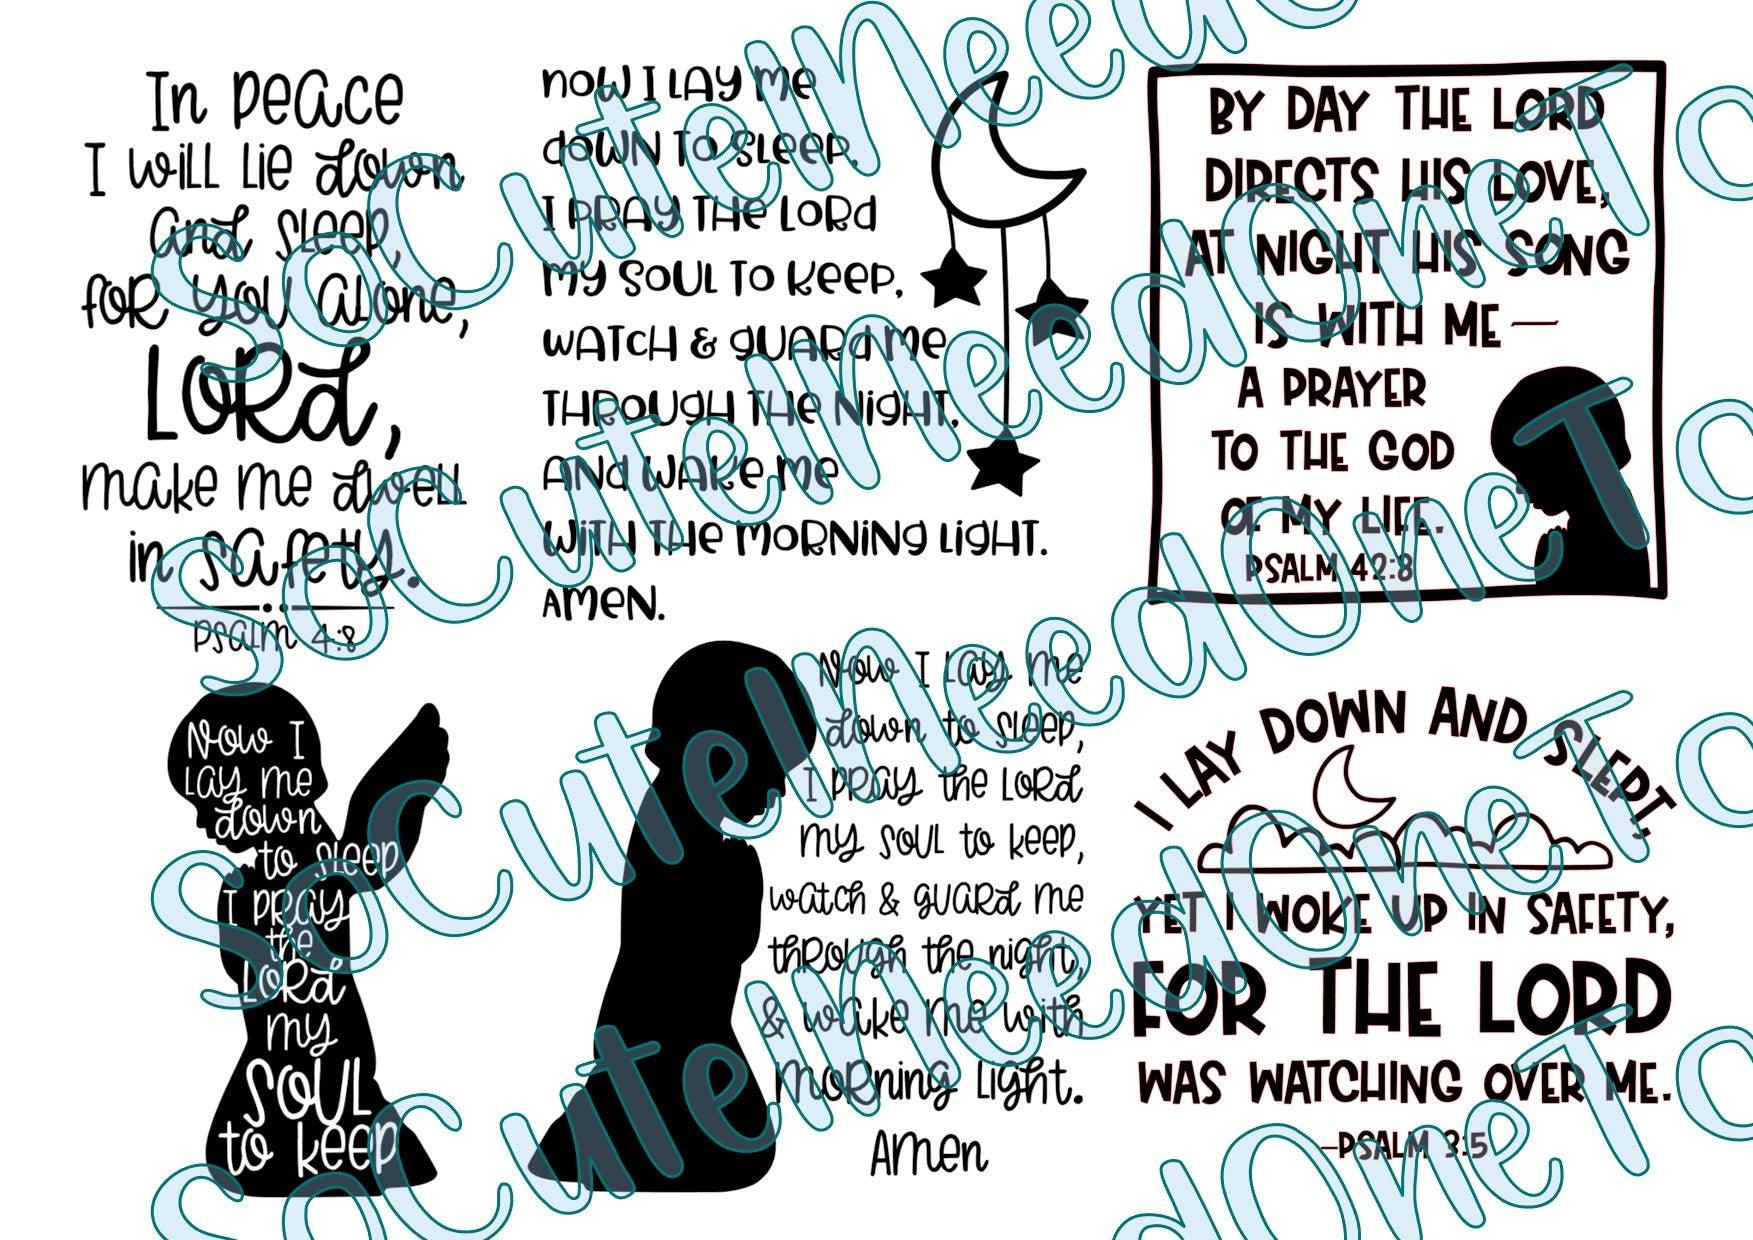 In peace
I will lie down
and sleep,
for you alone,
LORd,
make me dwell
in safety.
Psalm 4:8
now I LAY me
down to sleep,
I PRAY THe LoRd
my soul to keep,
watch & guard me
through the night,
and wake me
with the morning light.
Amen.
BY DAY THE LORD
DIRECTS HIS LOVE,
AT NIGHT HIS SONG
IS WITH ME—
A PRAYER
TO THE GOD
OF MY LIFE.
PSALM 42:8
Now I
lay me
down
to sleep
I pray
the
Lord
my
soul
to keep
Now I lay me
down to sleep,
I pray the Lord
my soul to keep,
watch & guard me
through the night,
& wake me with
morning light.
Amen
I LAY DOWN AND SLEPT,
YET I WOKE UP IN SAFETY,
FOR THE LORD
WAS WATCHING OVER ME.
–PSALM 3:5
SoCuteINeedOneToo
SoCuteINeedOneTo
SoCuteINeedOneTo
SoCuteINeedOneTo